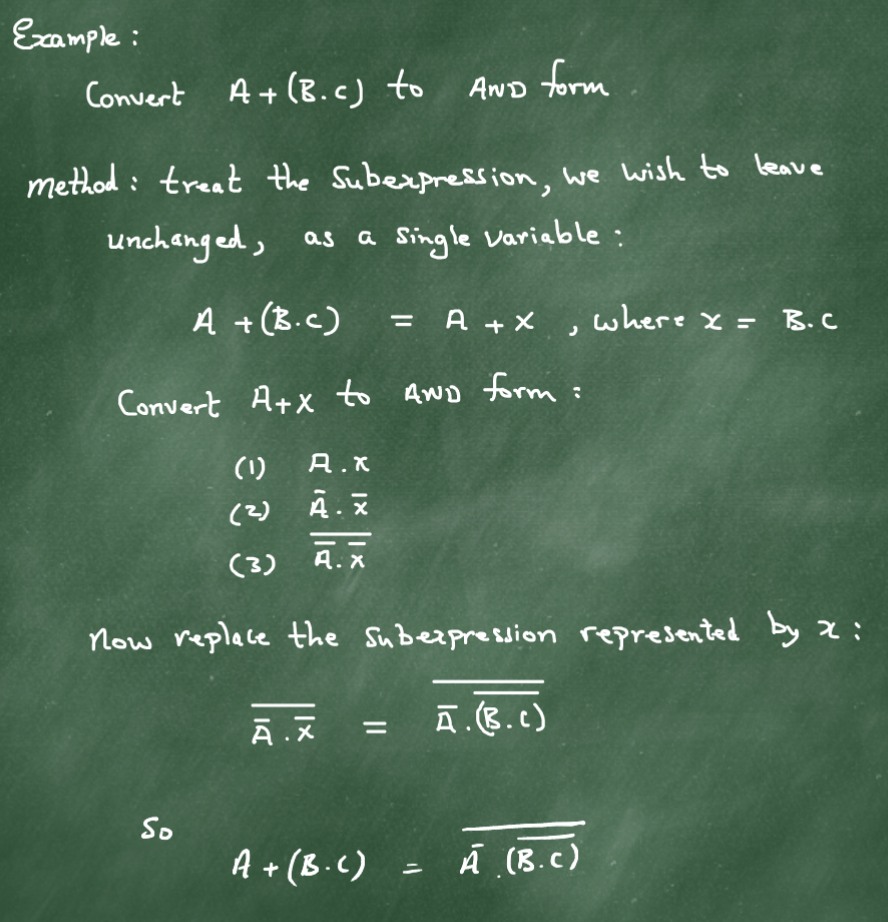 Example :
Convert A + (B.C) to AND form
method : treat the Subexpression, we wish to leave
unchanged, as a single variable :
A + (B.C) = A + X , where x = B.C
Convert A+X to AND form :
(1) A . x
(2) Ā . x̄
(3) \overline{Ā . x̄}
Now replace the Subexpression represented by x :
\overline{Ā . x̄} = \overline{Ā . \overline{(B.C)}}
So
A + (B.C) = \overline{Ā . \overline{(B.C)}}